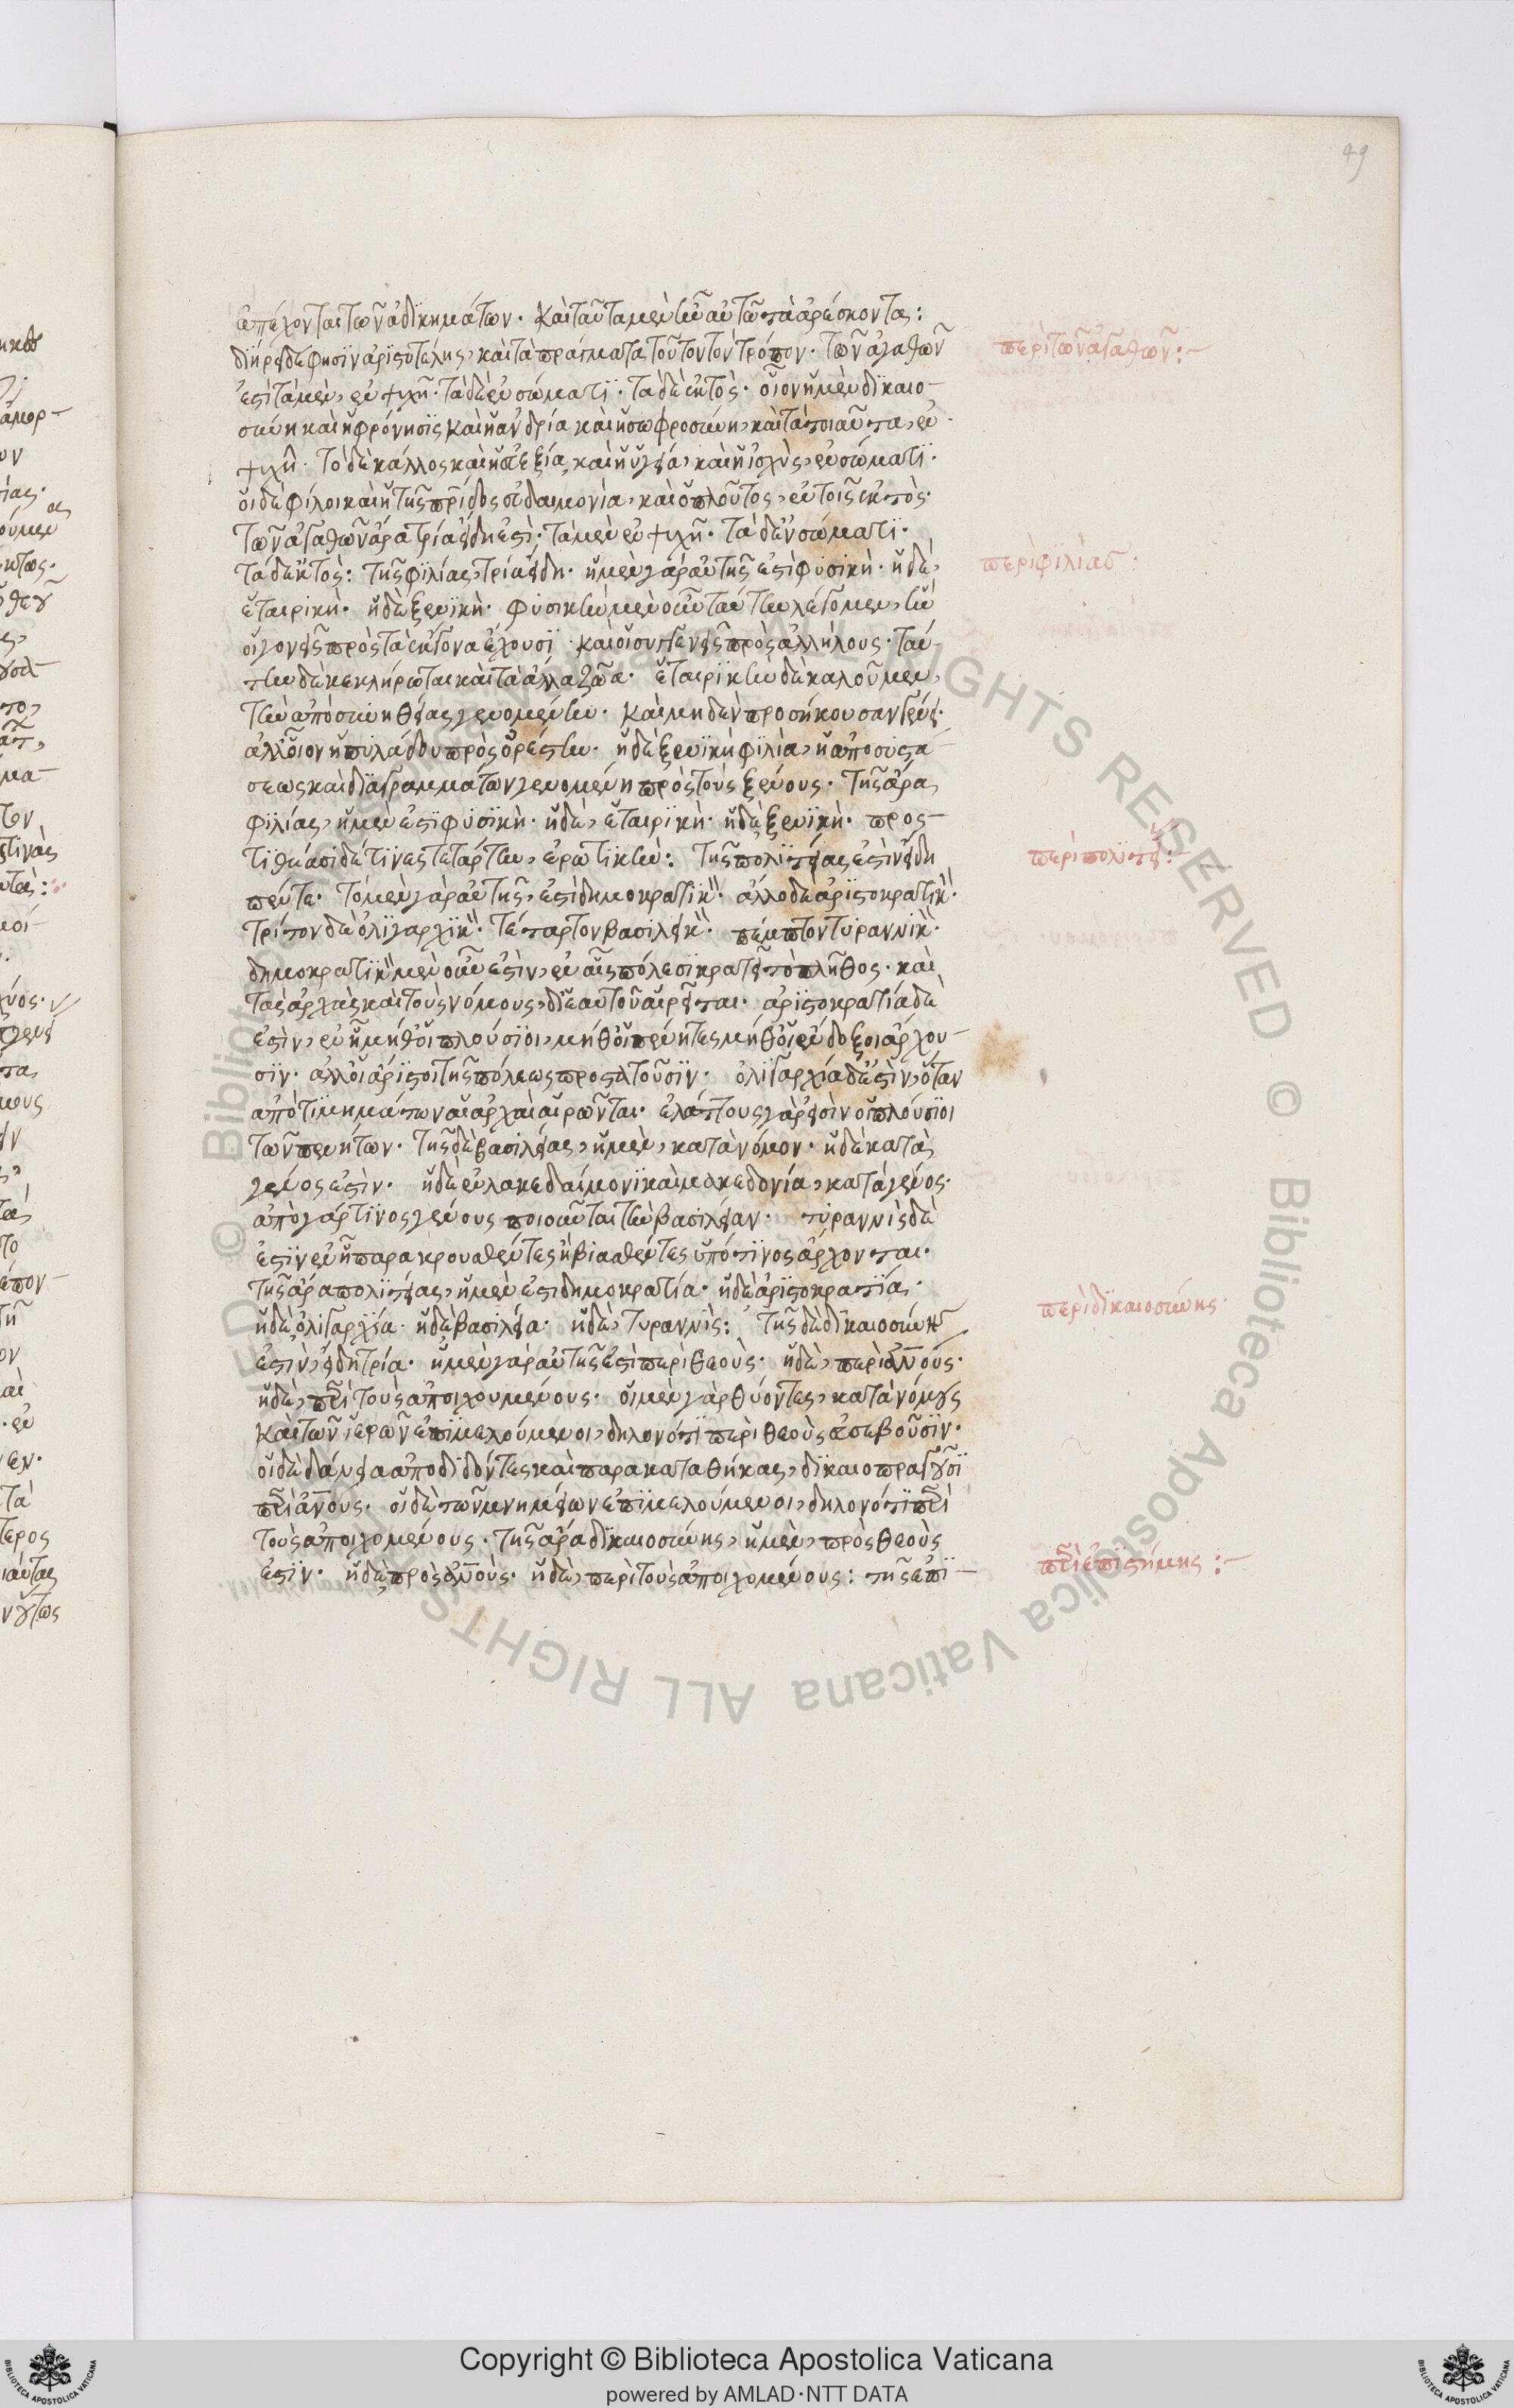 49
ἀπέχονται τῶν ἀδικημάτων. καὶ ταῦτα μὲν ἦν αὐτῶ τὰ ἀρέσκοντα:
διήρει δε φησὶν ἀριστοτέλης, καὶ τὰ πράγματα τοῦτον τὸν τρόπον. τῶν ἀγαθῶν
περὶ τῶν ἀγαθῶν:-
ἐστὶ τὰ μὲν, ἐν ψυχῆ. τὰ δὲ ἐν σώματι. τὰ δὲ ἐκτὸς. οἷον ἡ μὲν δικαιο-
σύνη καὶ ἡ φρόνησις καὶ ἡ ἀνδρία καὶ ἡ σωφροσύνη, καὶ τὰ τοιαῦτα, ἐν
ψυχῆ. τὸ δὲ κάλλος καὶ ἡ εὐεξία, καὶ ἡ ὑγεία, καὶ ἡ ἰσχὺς, ἐν σώματι.
οἱ δὲ φίλοι καὶ ἡ τῆς πρίδος εὐδαιμονία, καὶ ὁ πλοῦτος, ἐν τοῖς ἐκτὸς.
τῶν ἀγαθῶν ἄρα τρία εἴδη ἐστὶ. τὰ μὲν ἐν ψυχῆ. τὰ δ' ἐν σώματι.
τὰ δ' ἐκτὸς: τῆς φιλίας, τρία εἴδη. ἡ μὲν γὰρ αὐτῆς ἐστὶ φυσικὴ. ἡ δὲ,
περὶ φιλίας:
ἑταιρικὴ. ἡ δὲ ξενικὴ. φυσικὴν μὲν οὖν ταύτην λέγομεν, ἣν
οἱ γονεῖς πρὸς τὰ ἔκγονα ἔχουσι. καὶ οἱ συγγενεῖς πρὸς ἀλλήλους. ταύ-
την δὲ κεκλήρωται καὶ τὰ ἄλλα ζῶα. ἑταιρικὴν δὲ καλοῦμεν,
τὴν ἀπὸ συνηθείας γενομένην. καὶ μηδὲν προσήκουσαν γένει.
ἀλλ' οἷον ἡ πυλάδου πρὸς ὀρέστην. ἡ δὲ ξενικὴ φιλία, ἡ ἀπὸ συστά-
σεως καὶ διαγραμμάτων γενομένη πρὸς τοὺς ξένους. τῆς ἄρα
φιλίας, ἡ μὲν ἐστὶ φυσικὴ. ἡ δὲ, ἑταιρικὴ. ἡ δὲ ξενικὴ. προς-
τιθέασι δέ τινες τετάρτην, ἐρωτικὴν: τῆς πολιτείας ἐστὶν εἴδη
περὶ πολιτεί:-
πέντε. τὸ μὲν γὰρ αὐτῆς, ἐστὶ δημοκρατικ. ἄλλο δὲ ἀριστοκρατικ.
τρίτον δὲ ὀλιγαρχικ. τέταρτον βασιλεικ. πέμπτον τυραννικ.
δημοκρατικ μὲν οὖν ἐστὶν, ἐν αἷς πόλεσι κρατεῖ τὸ πλῆθος. καὶ
τὰς ἀρχὰς καὶ τοὺς νόμους, δι' ἑαυτοῦ αἱρεῖται. ἀριστοκρατία δὲ
ἐστὶν, ἐν ἧ μήθ' οἱ πλούσιοι, μήθ' οἱ πένητες μήθ' οἱ ἔνδοξοι ἄρχου-
σιν. ἀλλ' οἱ ἄριστοι τῆς πόλεως προστατοῦσιν. ὀλιγαρχία δ' ἐστὶν, ὅταν
ἀπὸ τιμημάτων αἱ ἀρχαὶ αἱρῶνται. ἐλάττους γὰρ εἰσὶν οἱ πλούσιοι
τῶν πενήτων. τῆς δὲ βασιλείας, ἡ μὲν, κατὰ νόμον. ἡ δὲ κατὰ
γένος ἐστὶν. ἡ δὲ ἐν λακεδαίμονι καὶ μακεδονία, κατὰ γένος.
ἀπὸ γάρ τινος γένους ποιοῦνται τὴν βασιλείαν. τυραννὶς δὲ
ἐστὶν ἐν ἧ παρακρουσθέντες ἢ βιασθέντες ὑπό τινος ἄρχονται.
τῆς ἄρα πολιτείας, ἡ μὲν ἐστι δημοκρατία. ἡ δὲ ἀριστοκρατία.
ἡ δὲ ὀλιγαρχία. ἡ δὲ βασιλεία. ἡ δὲ, τυραννὶς: τῆς δὲ δικαιοσύνης
περὶ δικαιοσύνης.
ἐστὶν, εἴδη τρία. ἡ μὲν γὰρ αὐτῆς ἐστὶ περὶ θεοὺς. ἡ δὲ, περὶ ἀνους.
ἡ δὲ, περὶ τοὺς ἀποιχομένους. οἱ μὲν γὰρ θύοντες, κατὰ νόμους
καὶ τῶν ἱερῶν ἐπιμελούμενοι, δηλονότι περὶ θεοὺς εὐσεβοῦσιν.
οἱ δὲ δάνεια ἀποδιδόντες καὶ παρακαταθήκας, δικαιοπραγοῦσι
περὶ ἀνους. οἱ δὲ τῶν μνημείων ἐπιμελούμενοι, δηλονότι περὶ
τοὺς ἀποιχομένους. τῆς ἄρα δικαιοσύνης, ἡ μὲν, πρὸς θεοὺς
ἐστὶν. ἡ δὲ πρὸς ἀνους. ἡ δὲ, περὶ τοὺς ἀποιχομένους: τῆς ἐπι-
περὶ ἐπιστήμης:-
© Biblioteca Apostolica Vaticana ALL RIGHTS RESERVED
Copyright © Biblioteca Apostolica Vaticana
powered by AMLAD·NTT DATA
BIBLIOTECA APOSTOLICA VATICANA